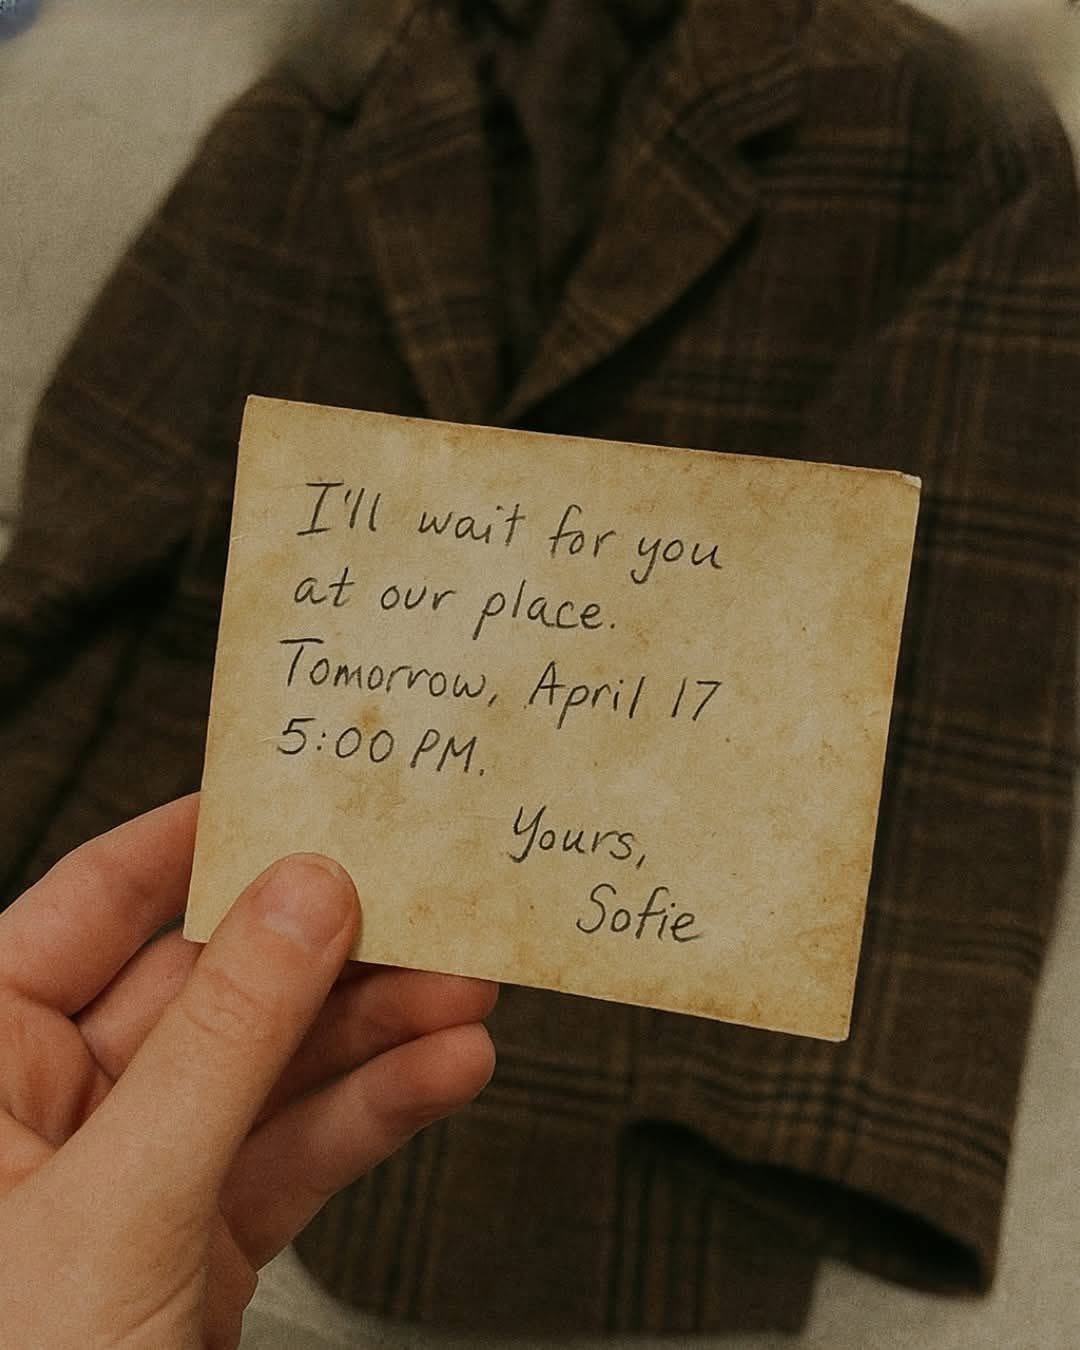 I'll wait for you
at our place.
Tomorrow, April 17
5:00 PM.
Yours,
Sofie